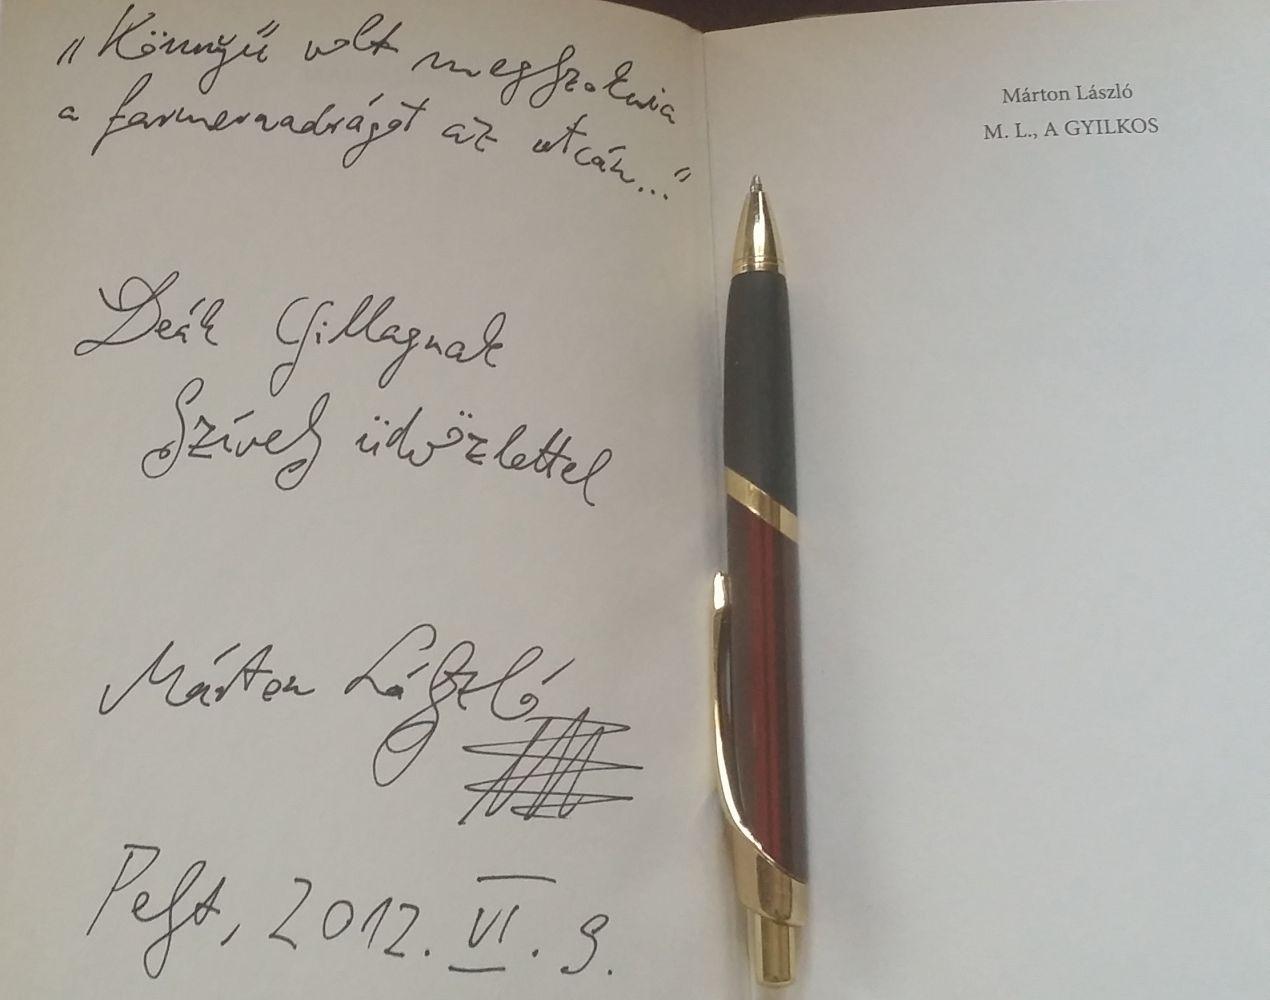 „Könnyű volt megszoknia
a farmernadrágot az utcán..."
Deák Csillagnak
Szívej üdvözlettel
Márton László
Pest, 2012. VI. 9.
Márton László
M. L., A GYILKOS